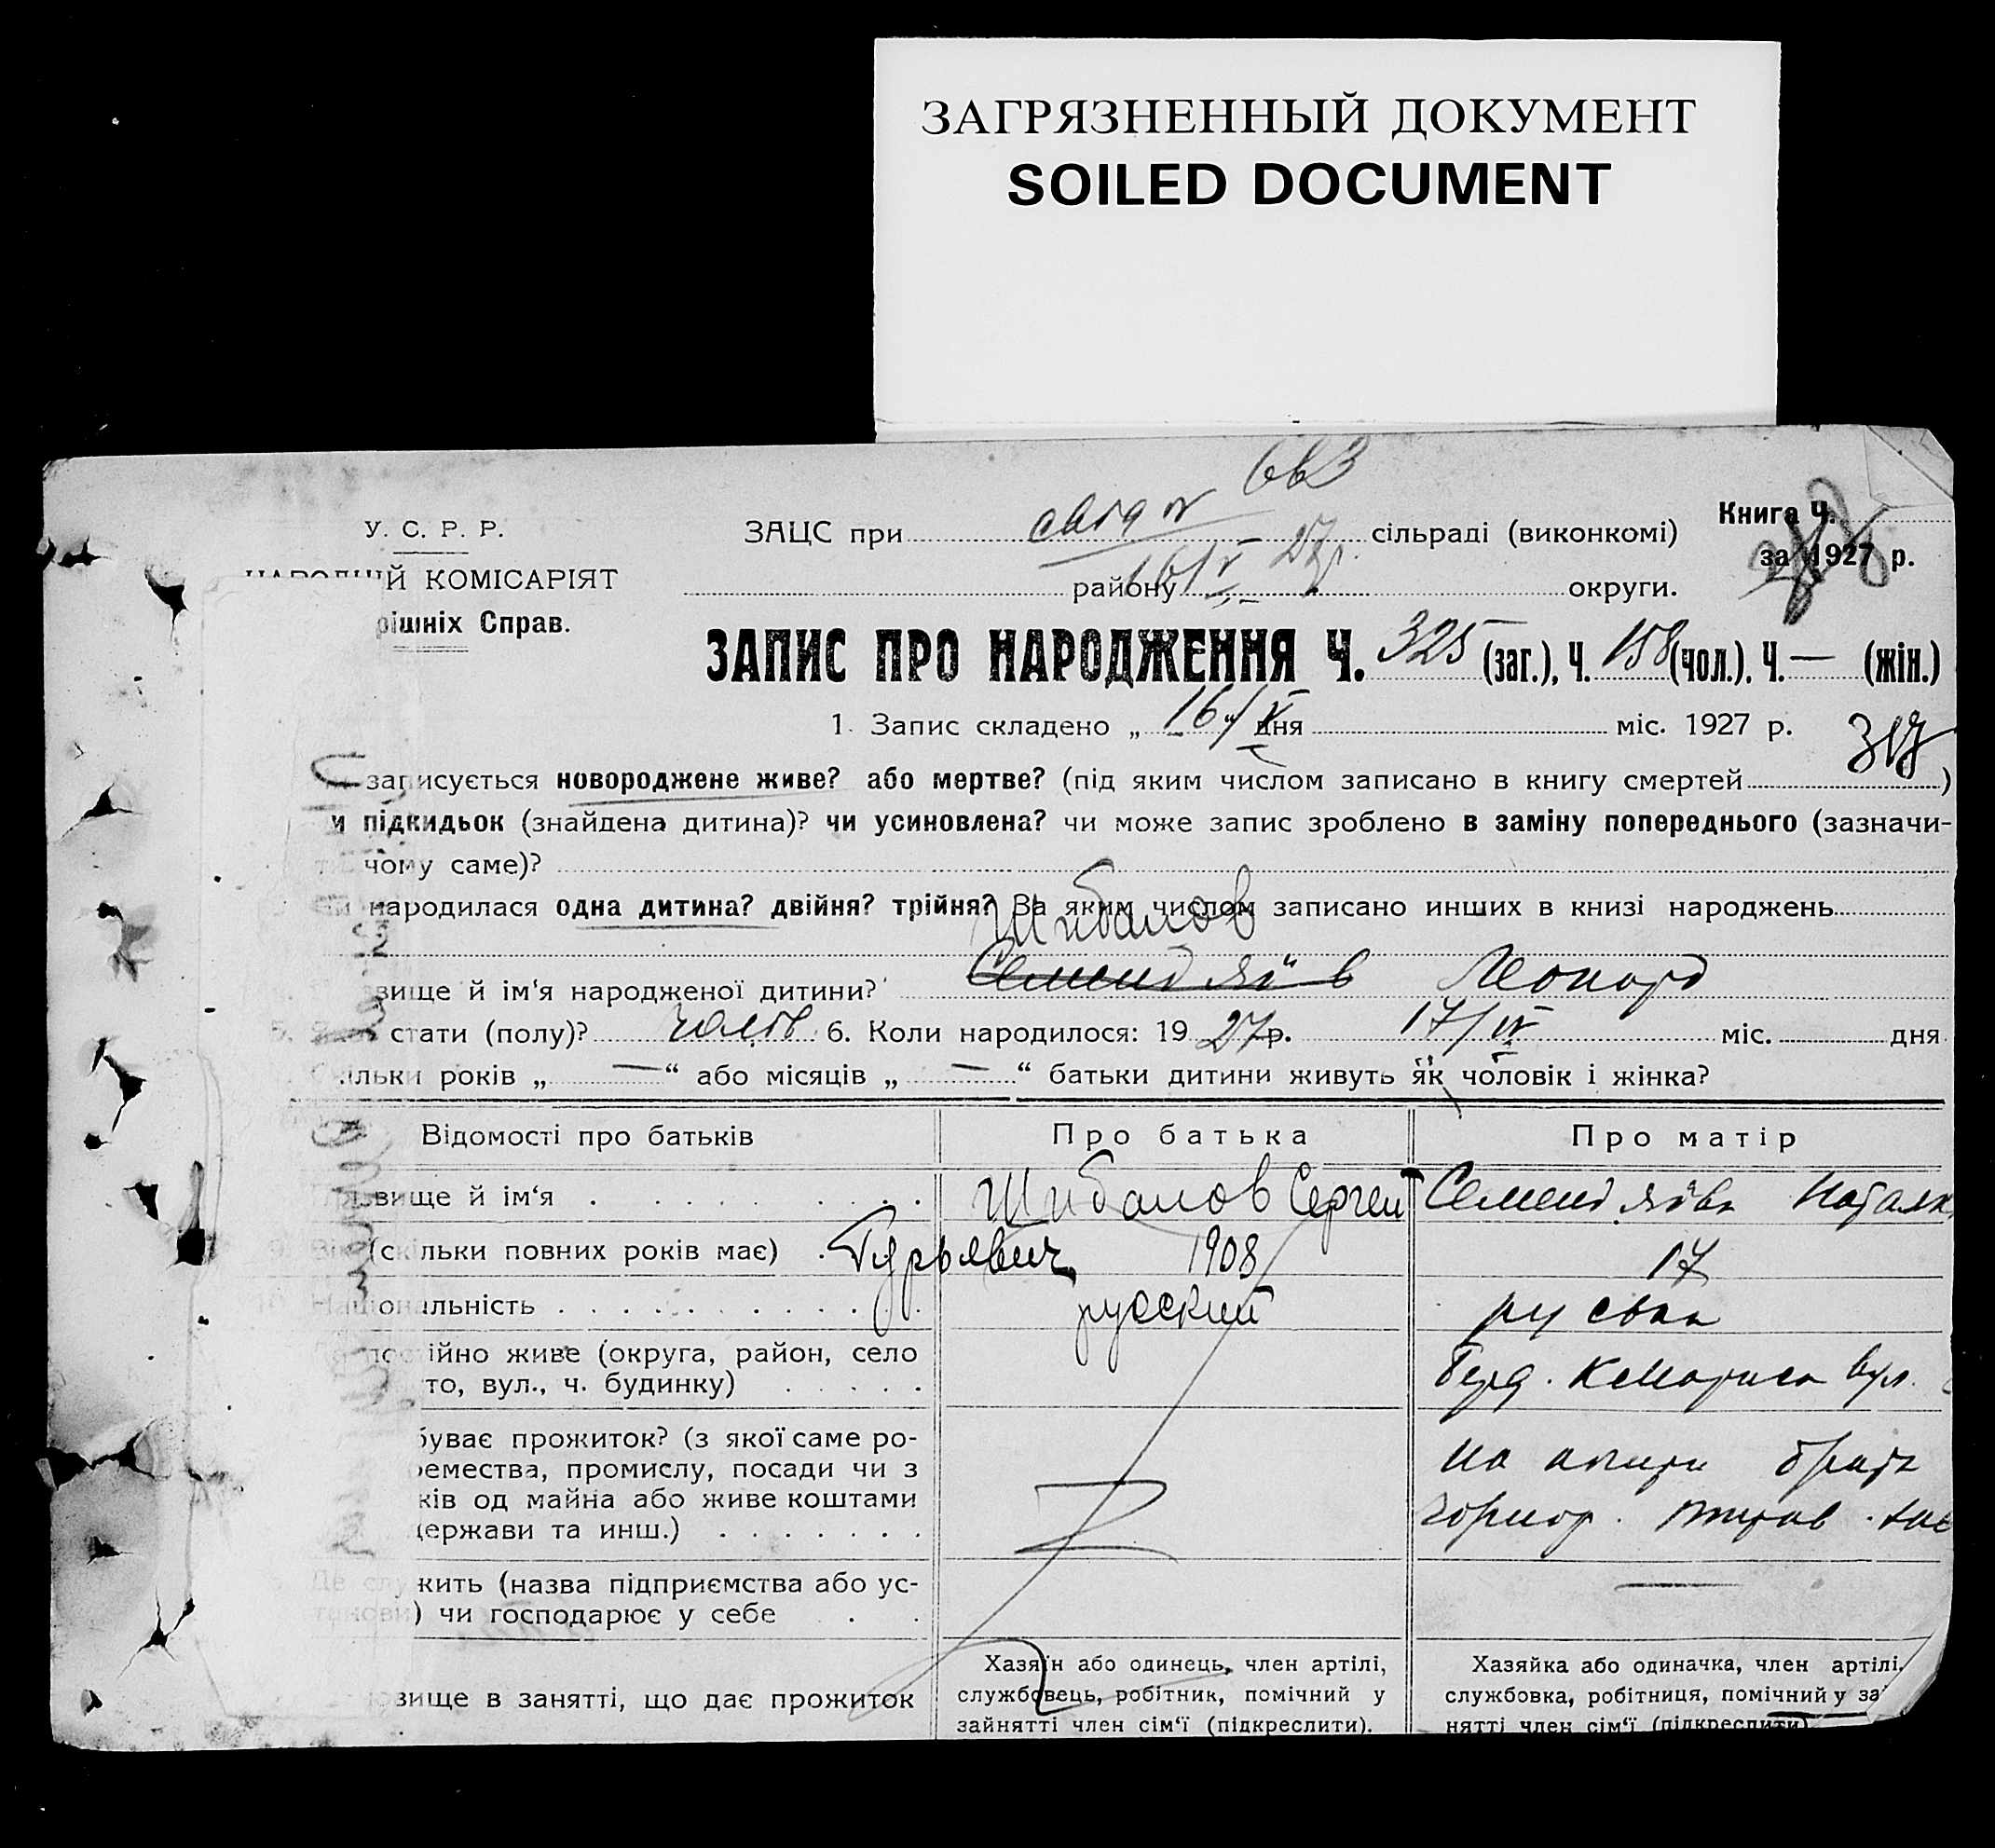 ЗАГРЯЗНЕННЫЙ ДОКУМЕНТ
SOILED DOCUMENT
663
У. С. Р. Р.
ЗАЦС при сільраді (виконкомі)
Книга Ч.
за 1927 р.
НАРОДНІЙ КОМІСАРІЯТ
району округи.
рішніх Справ.
ЗАПИС ПРО НАРОДЖЕННЯ Ч. 325 (заг.), Ч. 158 (чол.), Ч. — (жін.)
1. Запис складено „ 16/V дня міс. 1927 р.
317
записується новороджене живе? або мертве? (під яким числом записано в книгу смертей )
и підкидьок (знайдена дитина)? чи усиновлена? чи може запис зроблено в заміну попереднього (зазначи-
чому саме)?
народилася одна дитина? двійня? трійня? За яким числом записано инших в книзі народжень
Шибалов
вище й ім‘я народженої дитини? Семендяїв Леонард
стати (полу)? чолов 6. Коли народилося: 19 27 р. 17/IV міс. дня
Скільки років „ — “ або місяців „ — “ батьки дитини живуть як чоловік і жінка?
Відомості про батьків Про батька Про матір
вище й ім‘я Шибалов Сергей Семендяїва Наталк
Вік (скільки повних років має) Гурьевич 1908 17
Національність русский руська
ійно живе (округа, район, село
то, вул., ч. будинку) вул.
буває прожиток? (з якої саме ро-
емества, промислу, посади чи з
ків од майна або живе коштами
держави та инш.)
на брата
Де служить (назва підприємства або ус-
танови) чи господарює у себе
вище в занятті, що дає прожиток
Хазяїн або одинець, член артілі,
службовець, робітник, помічний у
зайнятті член сім‘ї (підкреслити).
Хазяйка або одиначка, член артілі,
службовка, робітниця, помічний у за
нятті член сім‘ї (підкреслити)